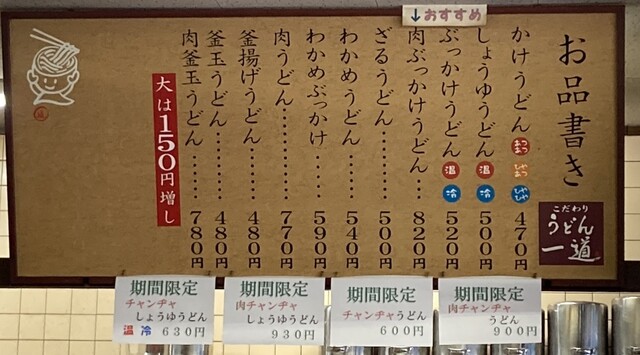 ↓おすすめ
お品書き
こだわり
うどん
一道
かけうどん あつあつ ひやあつ ひやひや 470円
しょうゆうどん 温 冷 500円
ぶっかけうどん 温 冷 520円
肉ぶっかけうどん… 820円
ざるうどん……… 500円
わかめうどん…… 540円
わかめぶっかけ…… 590円
肉うどん………… 770円
釜揚げうどん 480円
釜玉うどん…… 480円
肉釜玉うどん…… 780円
大は150円増し
期間限定
チャンヂャ
しょうゆうどん
温 冷 630円
期間限定
肉チャンヂャ
しょうゆうどん
930円
期間限定
チャンヂャうどん
600円
期間限定
肉チャンヂャ
うどん
900円